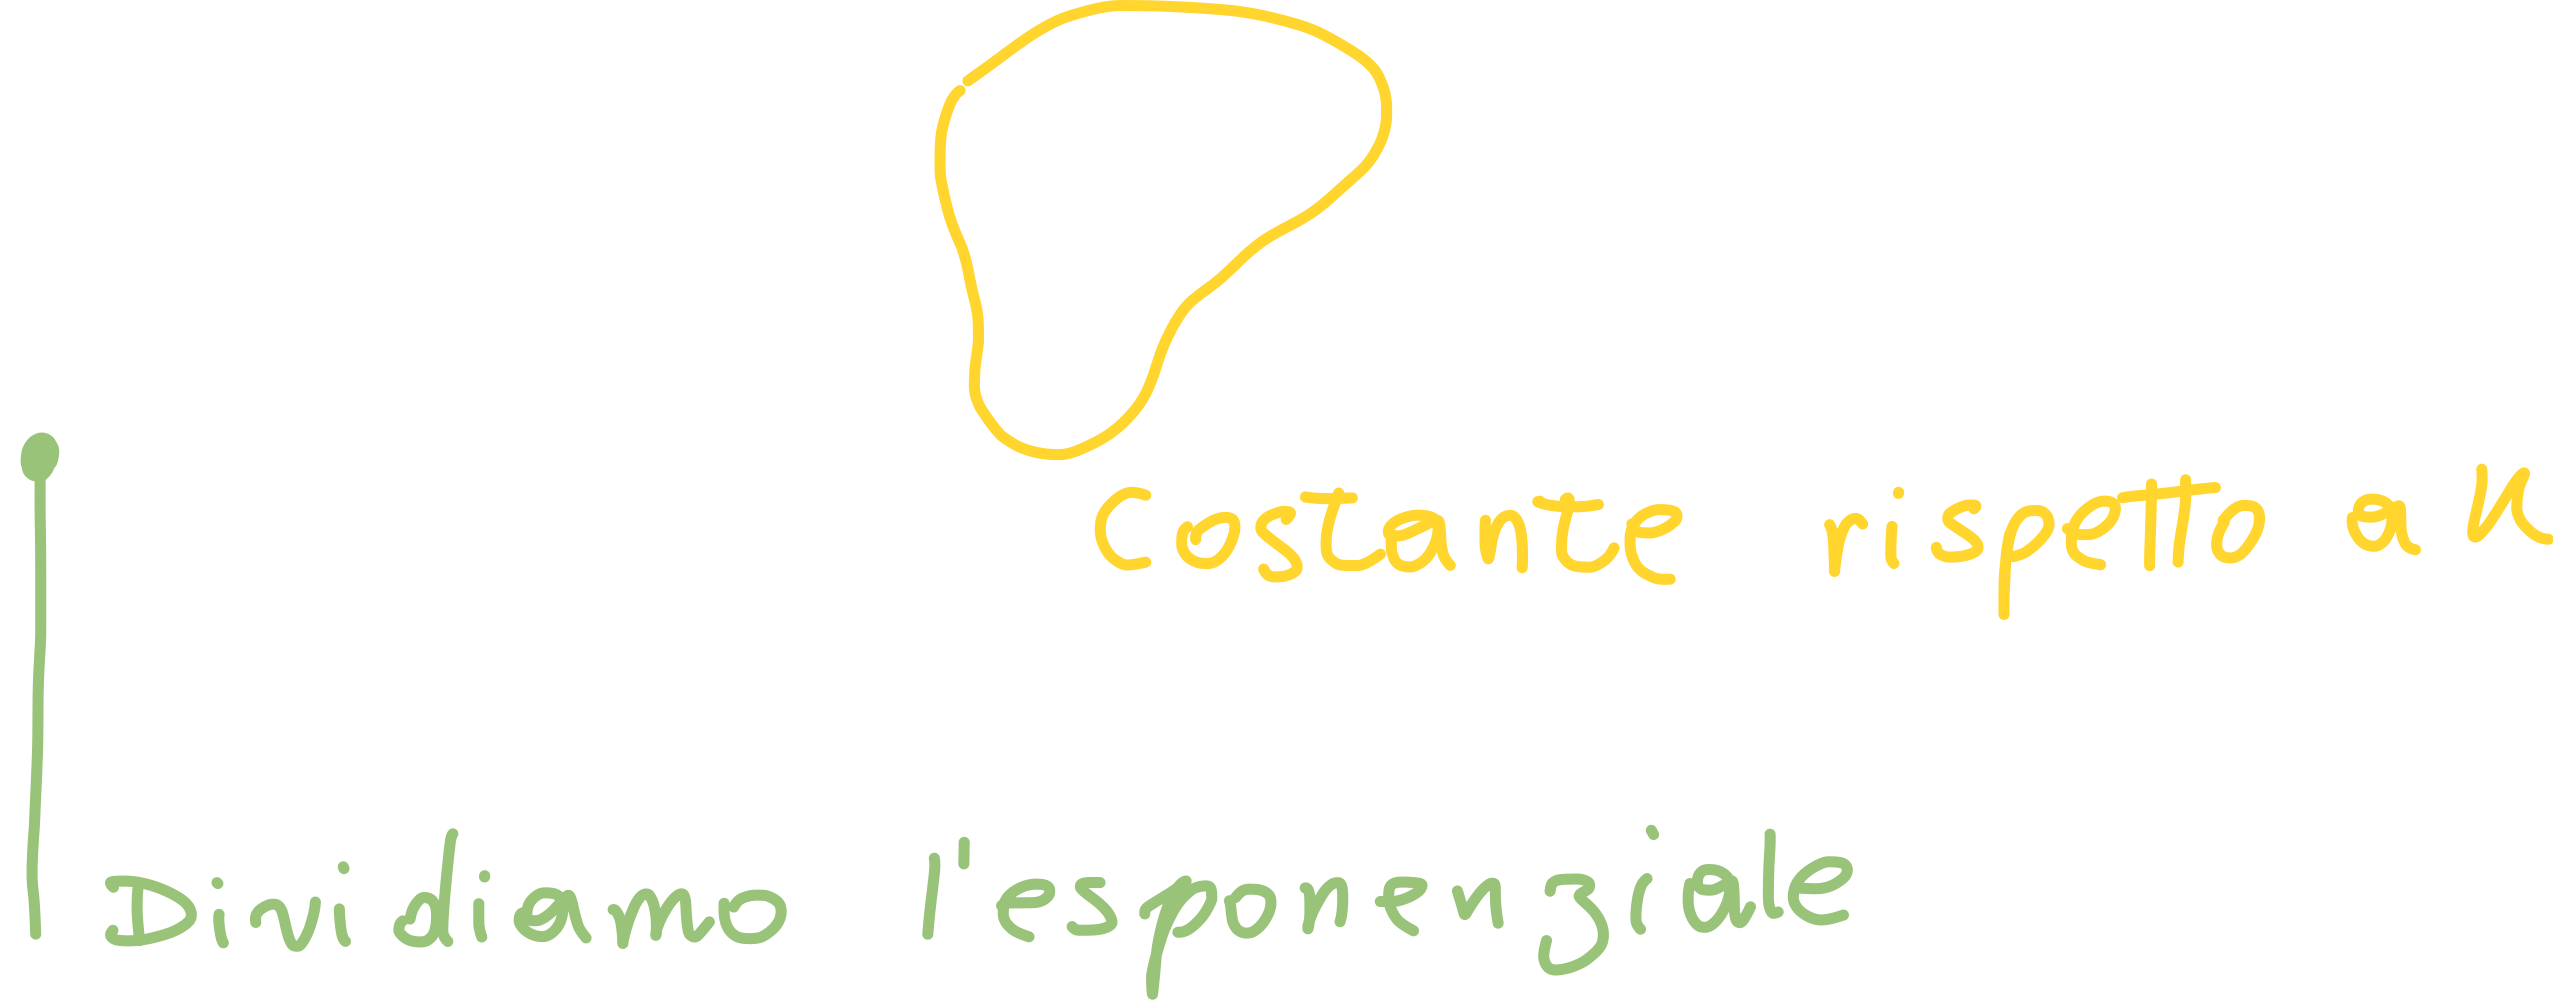 Costante rispetto a K
Dividiamo l'esponenziale